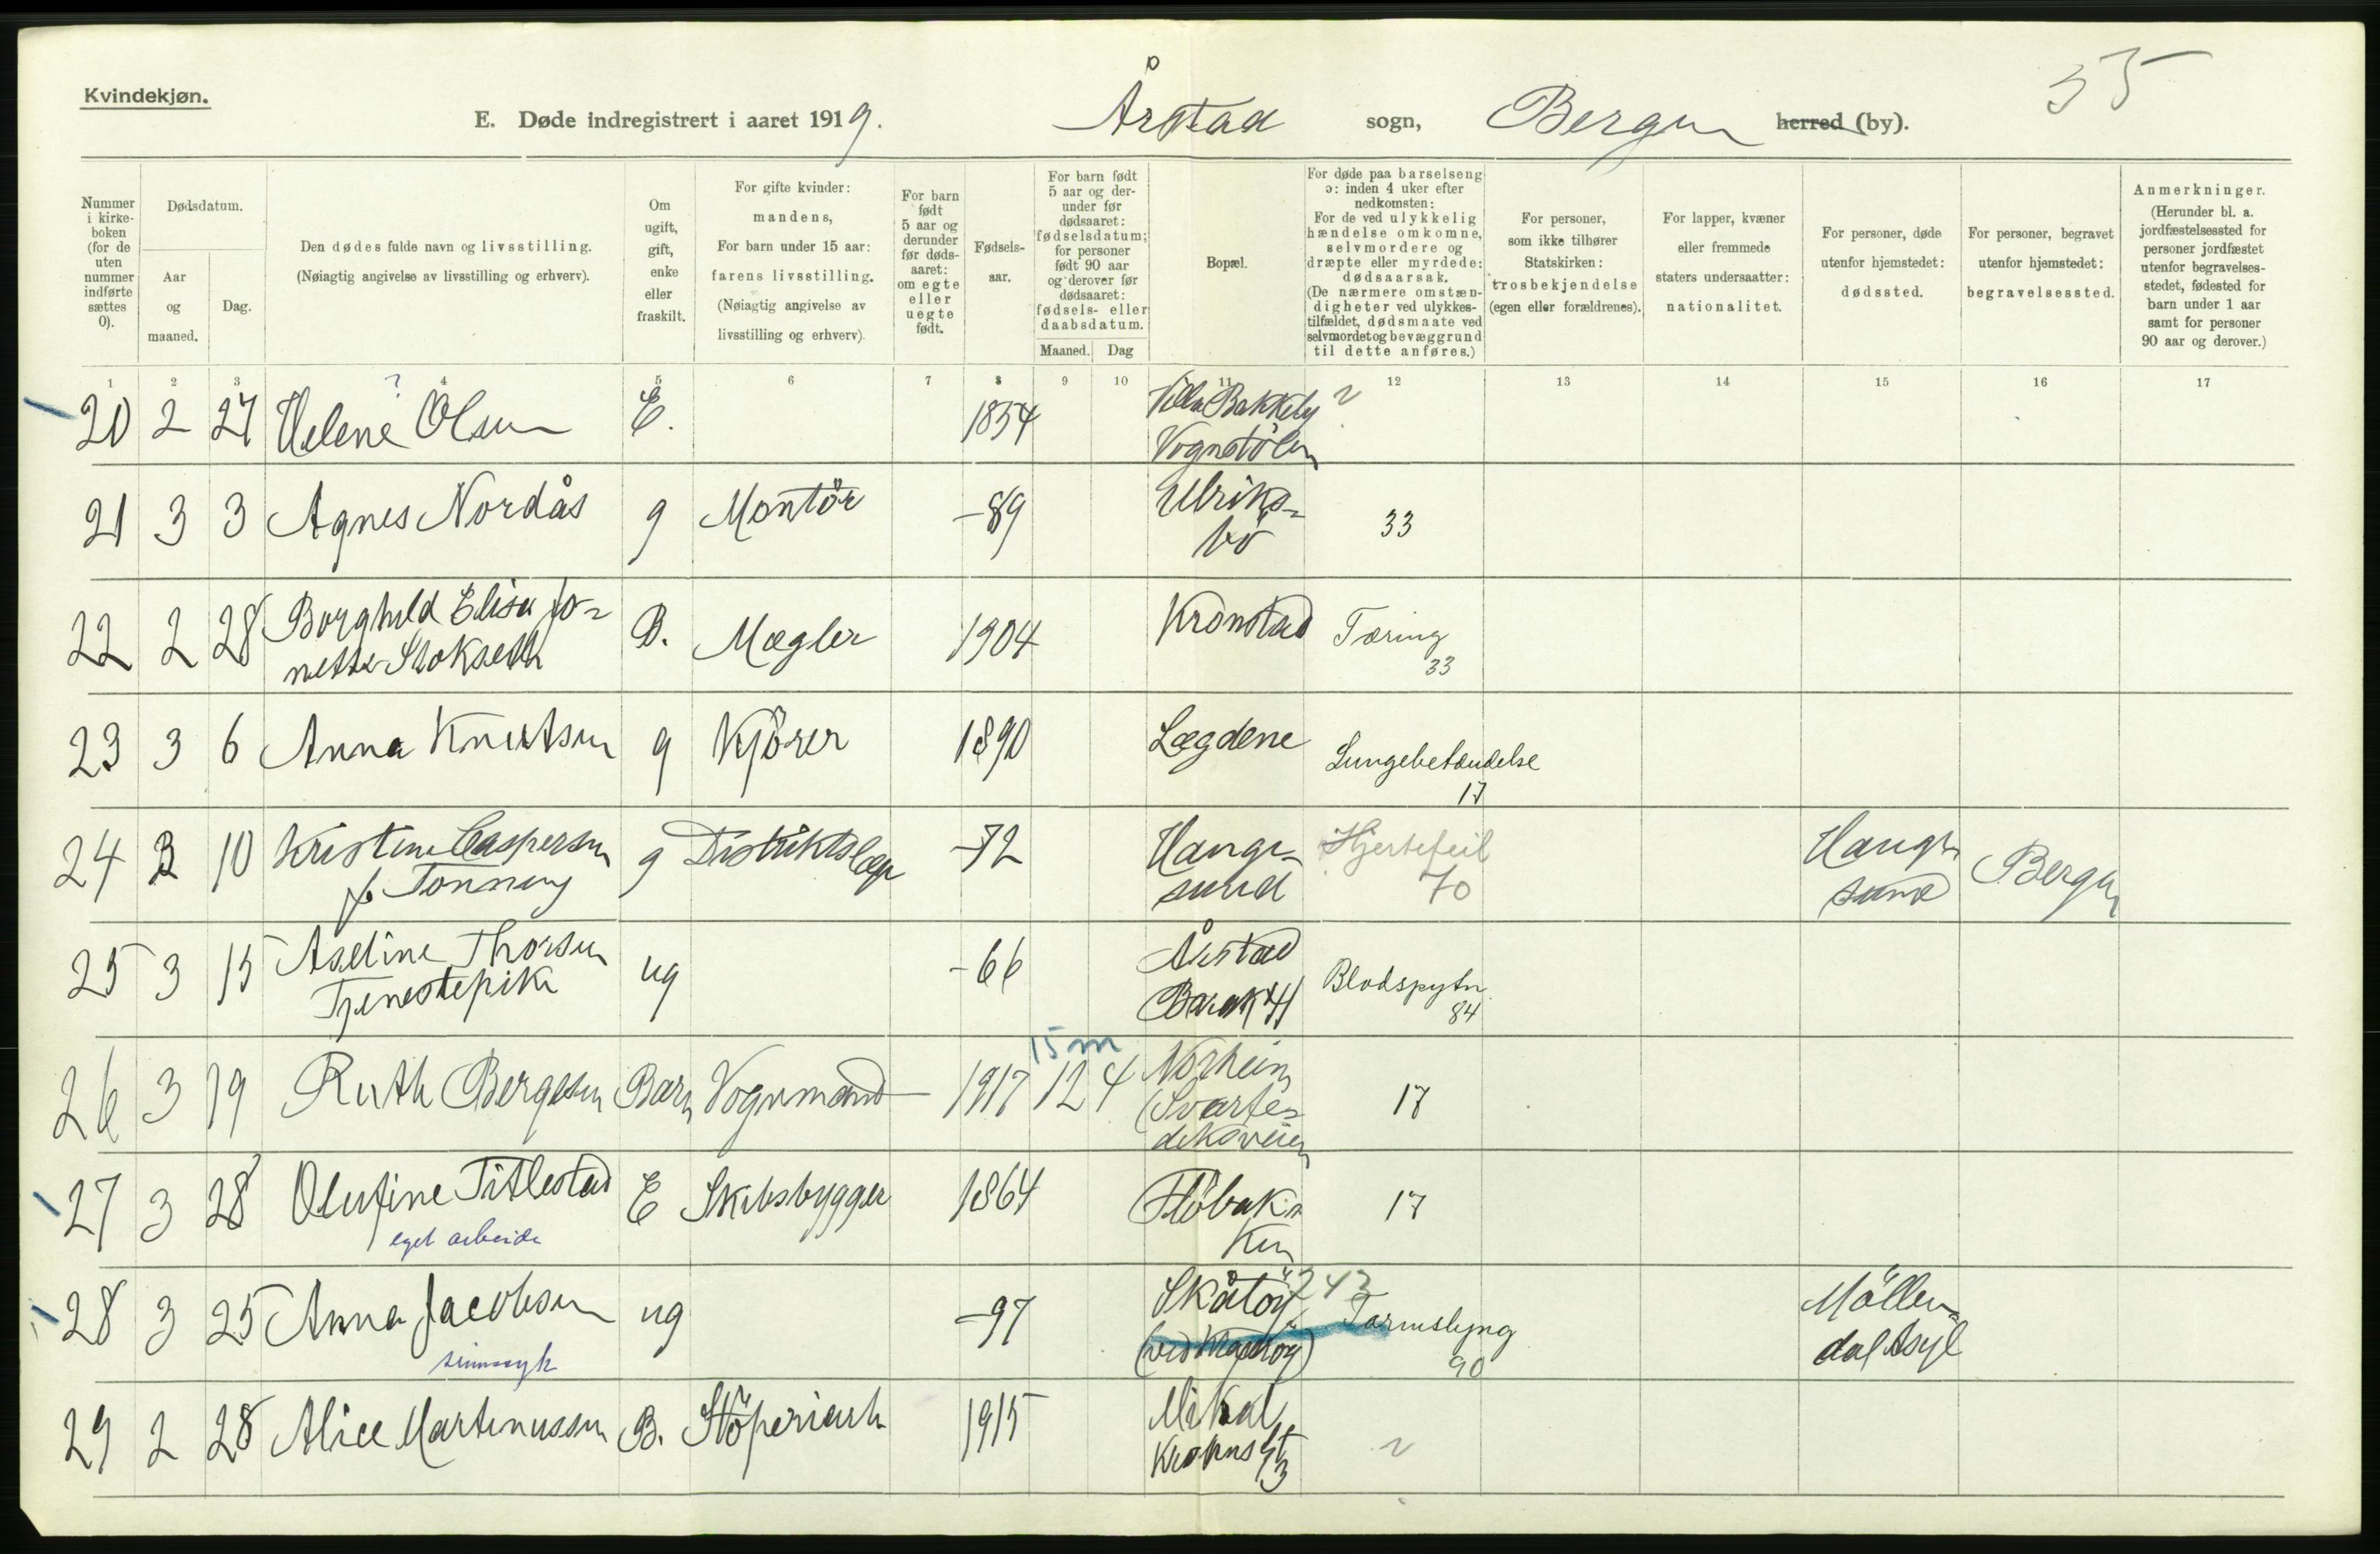 Kvindekjøn.
E. Døde indregistrert i aaret 1919.
Årstad sogn, Bergen herred (by).
35
Nummer i kirkeboken (for de uten nummer indførte sættes 0).
Dødsdatum.
Aar og maaned.
Dag.
Den dødes fulde navn og livsstilling.
(Nøiagtig angivelse av livsstilling og erhverv).
Om ugift, gift, enke eller fraskilt.
For gifte kvinder: mandens,
For barn under 15 aar: farens livsstilling.
(Nøiagtig angivelse av livsstilling og erhverv).
For barn født 5 aar og derunder før dødsaaret: om egte eller uegte født.
Fødselsaar.
For barn født 5 aar og derunder før dødsaaret: fødselsdatum; for personer født 90 aar og derover før dødsaaret: fødsels- eller daabsdatum.
Maaned. Dag
Bopæl.
For døde paa barselseng ɔ: inden 4 uker efter nedkomsten:
For de ved ulykkelig hændelse omkomne, selvmordere og dræpte eller myrdede: dødsaarsak.
(De nærmere omstændigheter ved ulykkestilfældet, dødsmaate ved selvmordet og bevæggrund til dette anføres.)
For personer, som ikke tilhører Statskirken: trosbekjendelse (egen eller forældrenes).
For lapper, kvæner eller fremmede staters undersaatter: nationalitet.
For personer, døde utenfor hjemstedet: dødssted.
For personer, begravet utenfor hjemstedet: begravelsessted.
Anmerkninger.
(Herunder bl. a. jordfæstelsessted for personer jordfæstet utenfor begravelsesstedet, fødested for barn under 1 aar samt for personer 90 aar og derover.)
1 2 3 4 5 6 7 8 9 10 11 12 13 14 15 16 17
20 2 27 Helene Olsen E. 1854 Villa Bakkely
Vognstölen
21 3 3 Agnes Nordås g Montör -89 Ulriks-
bö 33
22 2 28 Borghild Elisa Jo-
nette Stokseth B. Mægler 1904 Kronstad Tæring
33
23 3 6 Anna Knutsen g Kjörer 1890 Lægdene Lungebetændelse
17
24 3 10 Kristine Caspersen
f. Tonning g Distriktslæge -72 Hauge-
sund Hjertefeil
70 Hauge-
sund Bergen
25 3 15 Aseline Thorsen
Tjenestepike ug -66 Årstad
Barak Blodspytn.
84
26 3 19 Ruth Bergesen Barn Vognmand 1917 12 4 15 m Norheim
(Svarte-
diksveien 17
27 3 28 Olufine Titlestad
eget arbeide E Skibsbygger 1864 Flöbak-
ken 17
28 3 25 Anna Jacobsen
sinnssyk ug -97 Skåtöy 243
Tarmslyng
90 Möllen-
dal Asyl
29 2 28 Alice Martinussen B. Stöperiarb 1915 Mikal
Krohns gt
3